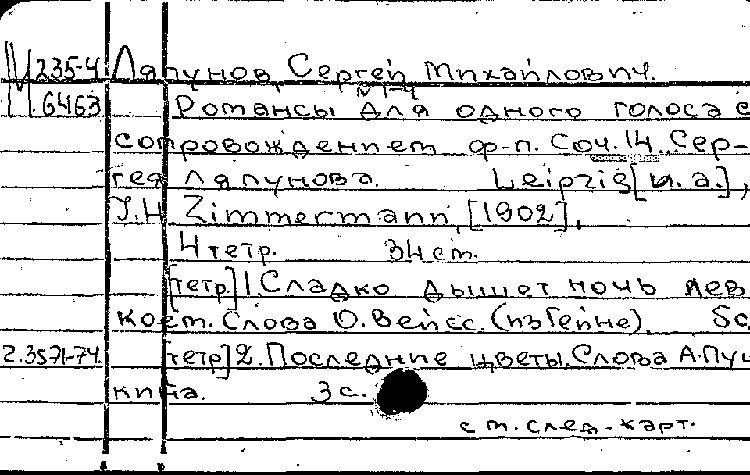 М 235-4 Ляпунов, Сергей Михайлович.
6463 Романсы для одного голоса с
сопровождением ф-п. Соч. 14. Сер-
гея Ляпунова. Leipzig [u. a.],
J. H. Zimmermann, [1902].
4 тетр. 34 см.
[тетр.] 1. Сладко дышет ночь лев
коем. Слова О. Вейсс. (из Гейне).
2.3571-74. [тетр.] 2. Последние цветы. Слова А. Пуш
кина. 3 с.
см. след. карт.